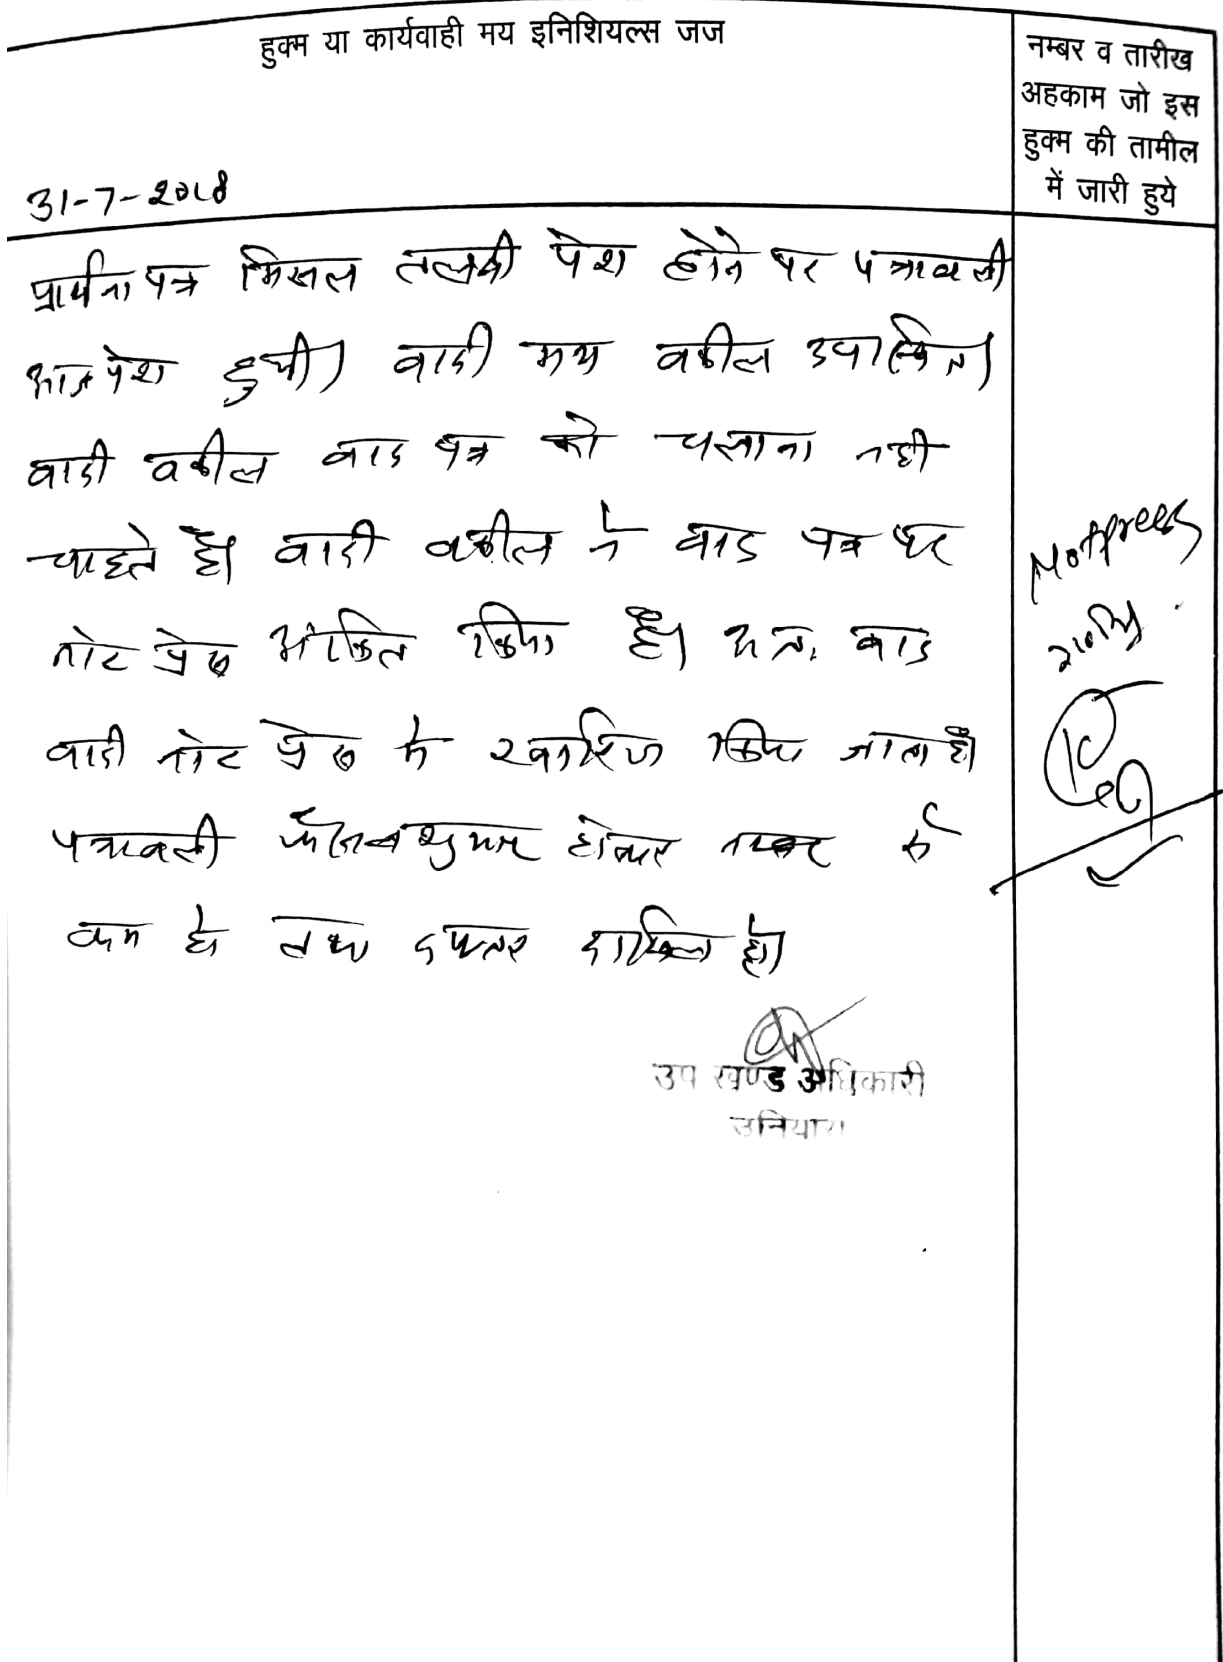 हुक्म या कार्यवाही मय इनिशियल्स जज
नम्बर व तारीख
अहकाम जो इस
हुक्म की तामील
में जारी हुये
31-7-2018
प्रार्थना पत्र मिसल तलबी पेश होने पर पत्रावली
आज पेश हुयी। वादी मय वकील उपस्थित।
वादी वकील वाद पत्र को चलाना नही
चाहते है। वादी वकील ने वाद पत्र पर
नोट प्रेस अंकित किया है। अतः वाद
वादी नोट प्रेस में खारिज किया जाता है।
पत्रावली फैसल शुमार होकर नम्बर से
कम हो तथा दफ्तर दाखिल हो।
Notpress
उप खण्ड अधिकारी
उनियारा